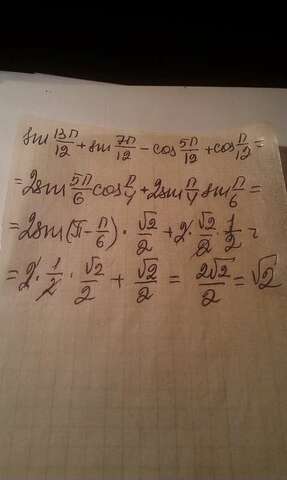 sin 13π/12 + sin 7π/12 − cos 5π/12 + cos π/12 =
= 2sin 5π/6 cos π/4 + 2sin π/4 sin π/6 =
= 2sin(π − π/6) · √2/2 + 2 · √2/2 · 1/2 =
= 2 · 1/2 · √2/2 + √2/2 = 2√2/2 = √2